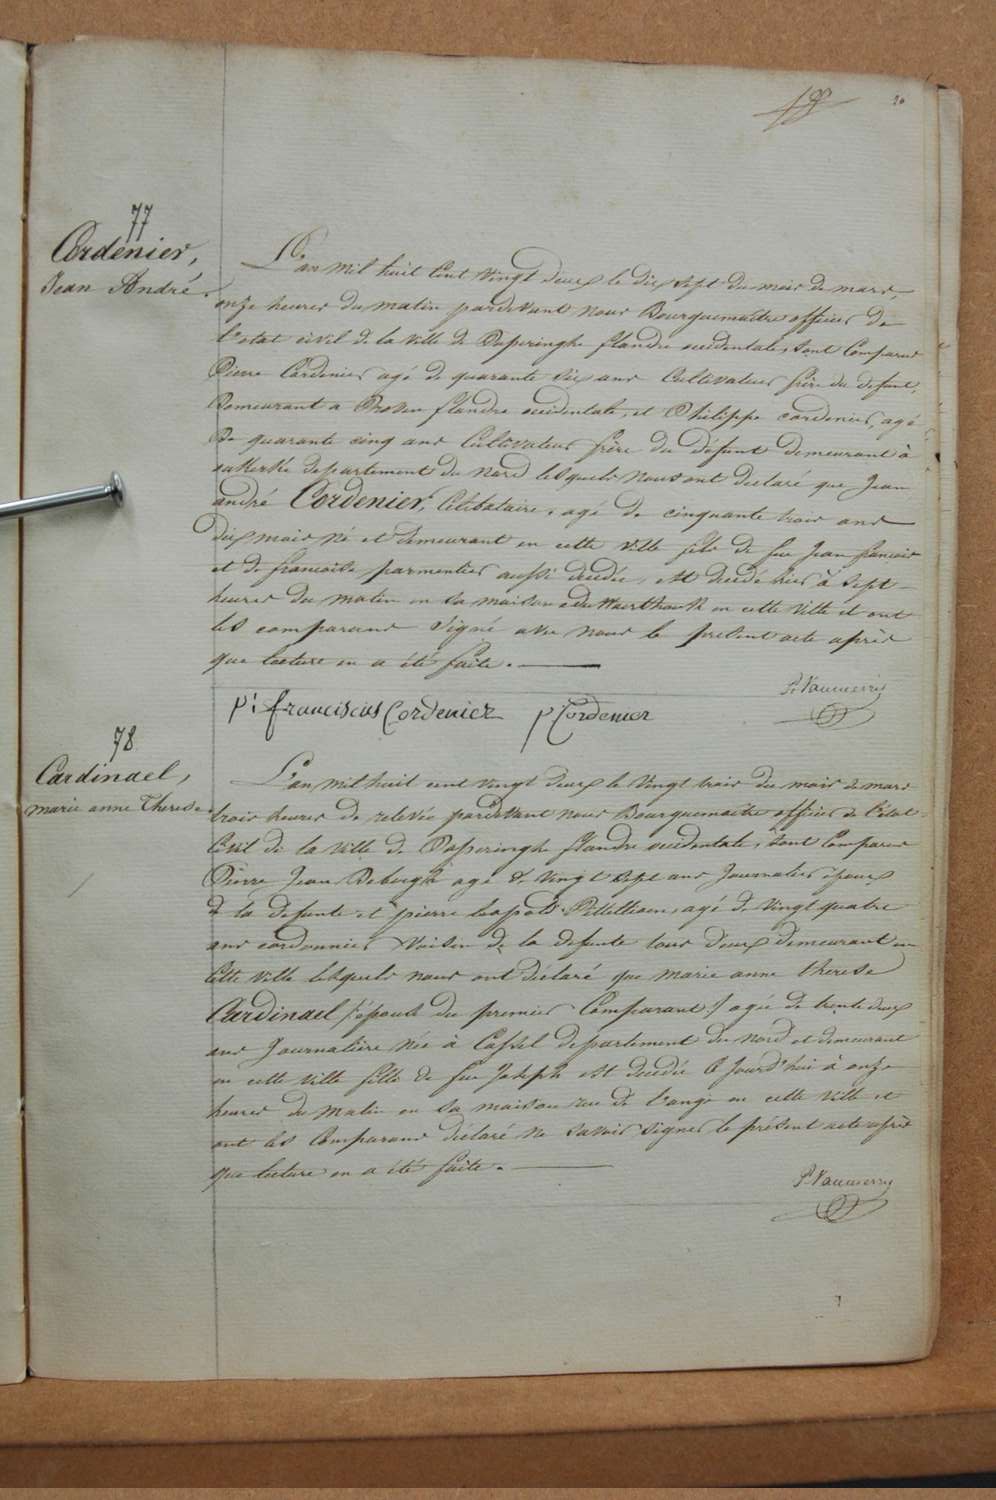 20
77
Cordenier,
Jean André.
L'an mil huit cent vingt deux le dix sept du mois de mars,
onze heures du matin pardevant nous Bourguemaître officier de
l'état civil de la ville de Poperinghe flandre occidentale, sont comparus
Pierre Cordenier agé de quarante six ans Cultivateur frère du defunt,
demeurant a Proven flandre occidentale, et Philippe cordenier, agé
de quarante cinq ans Cultivateur frère du défunt demeurant à
departement du Nord lesquels nous ont declaré que Jean
andré Cordenier, Celibataire, agé de cinquante trois ans
dix mois né et demeurant en cette ville fils de feu Jean françois
et de francoise parmentier aussi decedée, est decedé hier à sept
heures du matin en sa maison en cette ville et ont
les comparans signé avec nous le present acte après
que lecture en a été faite.
pi franciscus Cordenier p Cordenier
P. Vanmerris
78
Cardinael,
marie anne Therese.
L'an mil huit cent vingt deux le vingt trois du mois de mars
trois heures de relevée pardevant nous Bourguemaitre officier de l'état
Civil de la ville de Poperinghe flandre occidentale, sont comparus
Pierre Jean Debergh agé de vingt sept ans Journalier époux
de la defunte et pierre leopold agé de vingt quatre
ans cordonnier Voisin de la defunte tous deux demeurant en
cette ville lesquels nous ont déclaré que marie anne therese
Cardinael /:épouse du premier Comparant:/ agée de trente deux
ans Journalière née à Cassel departement du Nord et demeurant
en cette ville fille de feu Joseph est decedée c'jourd'hui à onze
heures du matin en sa maison rue de l'ange en cette ville et
ont les Comparans déclaré ne savoir signer le présent acte après
que lecture en a été faite.
P. Vanmerris